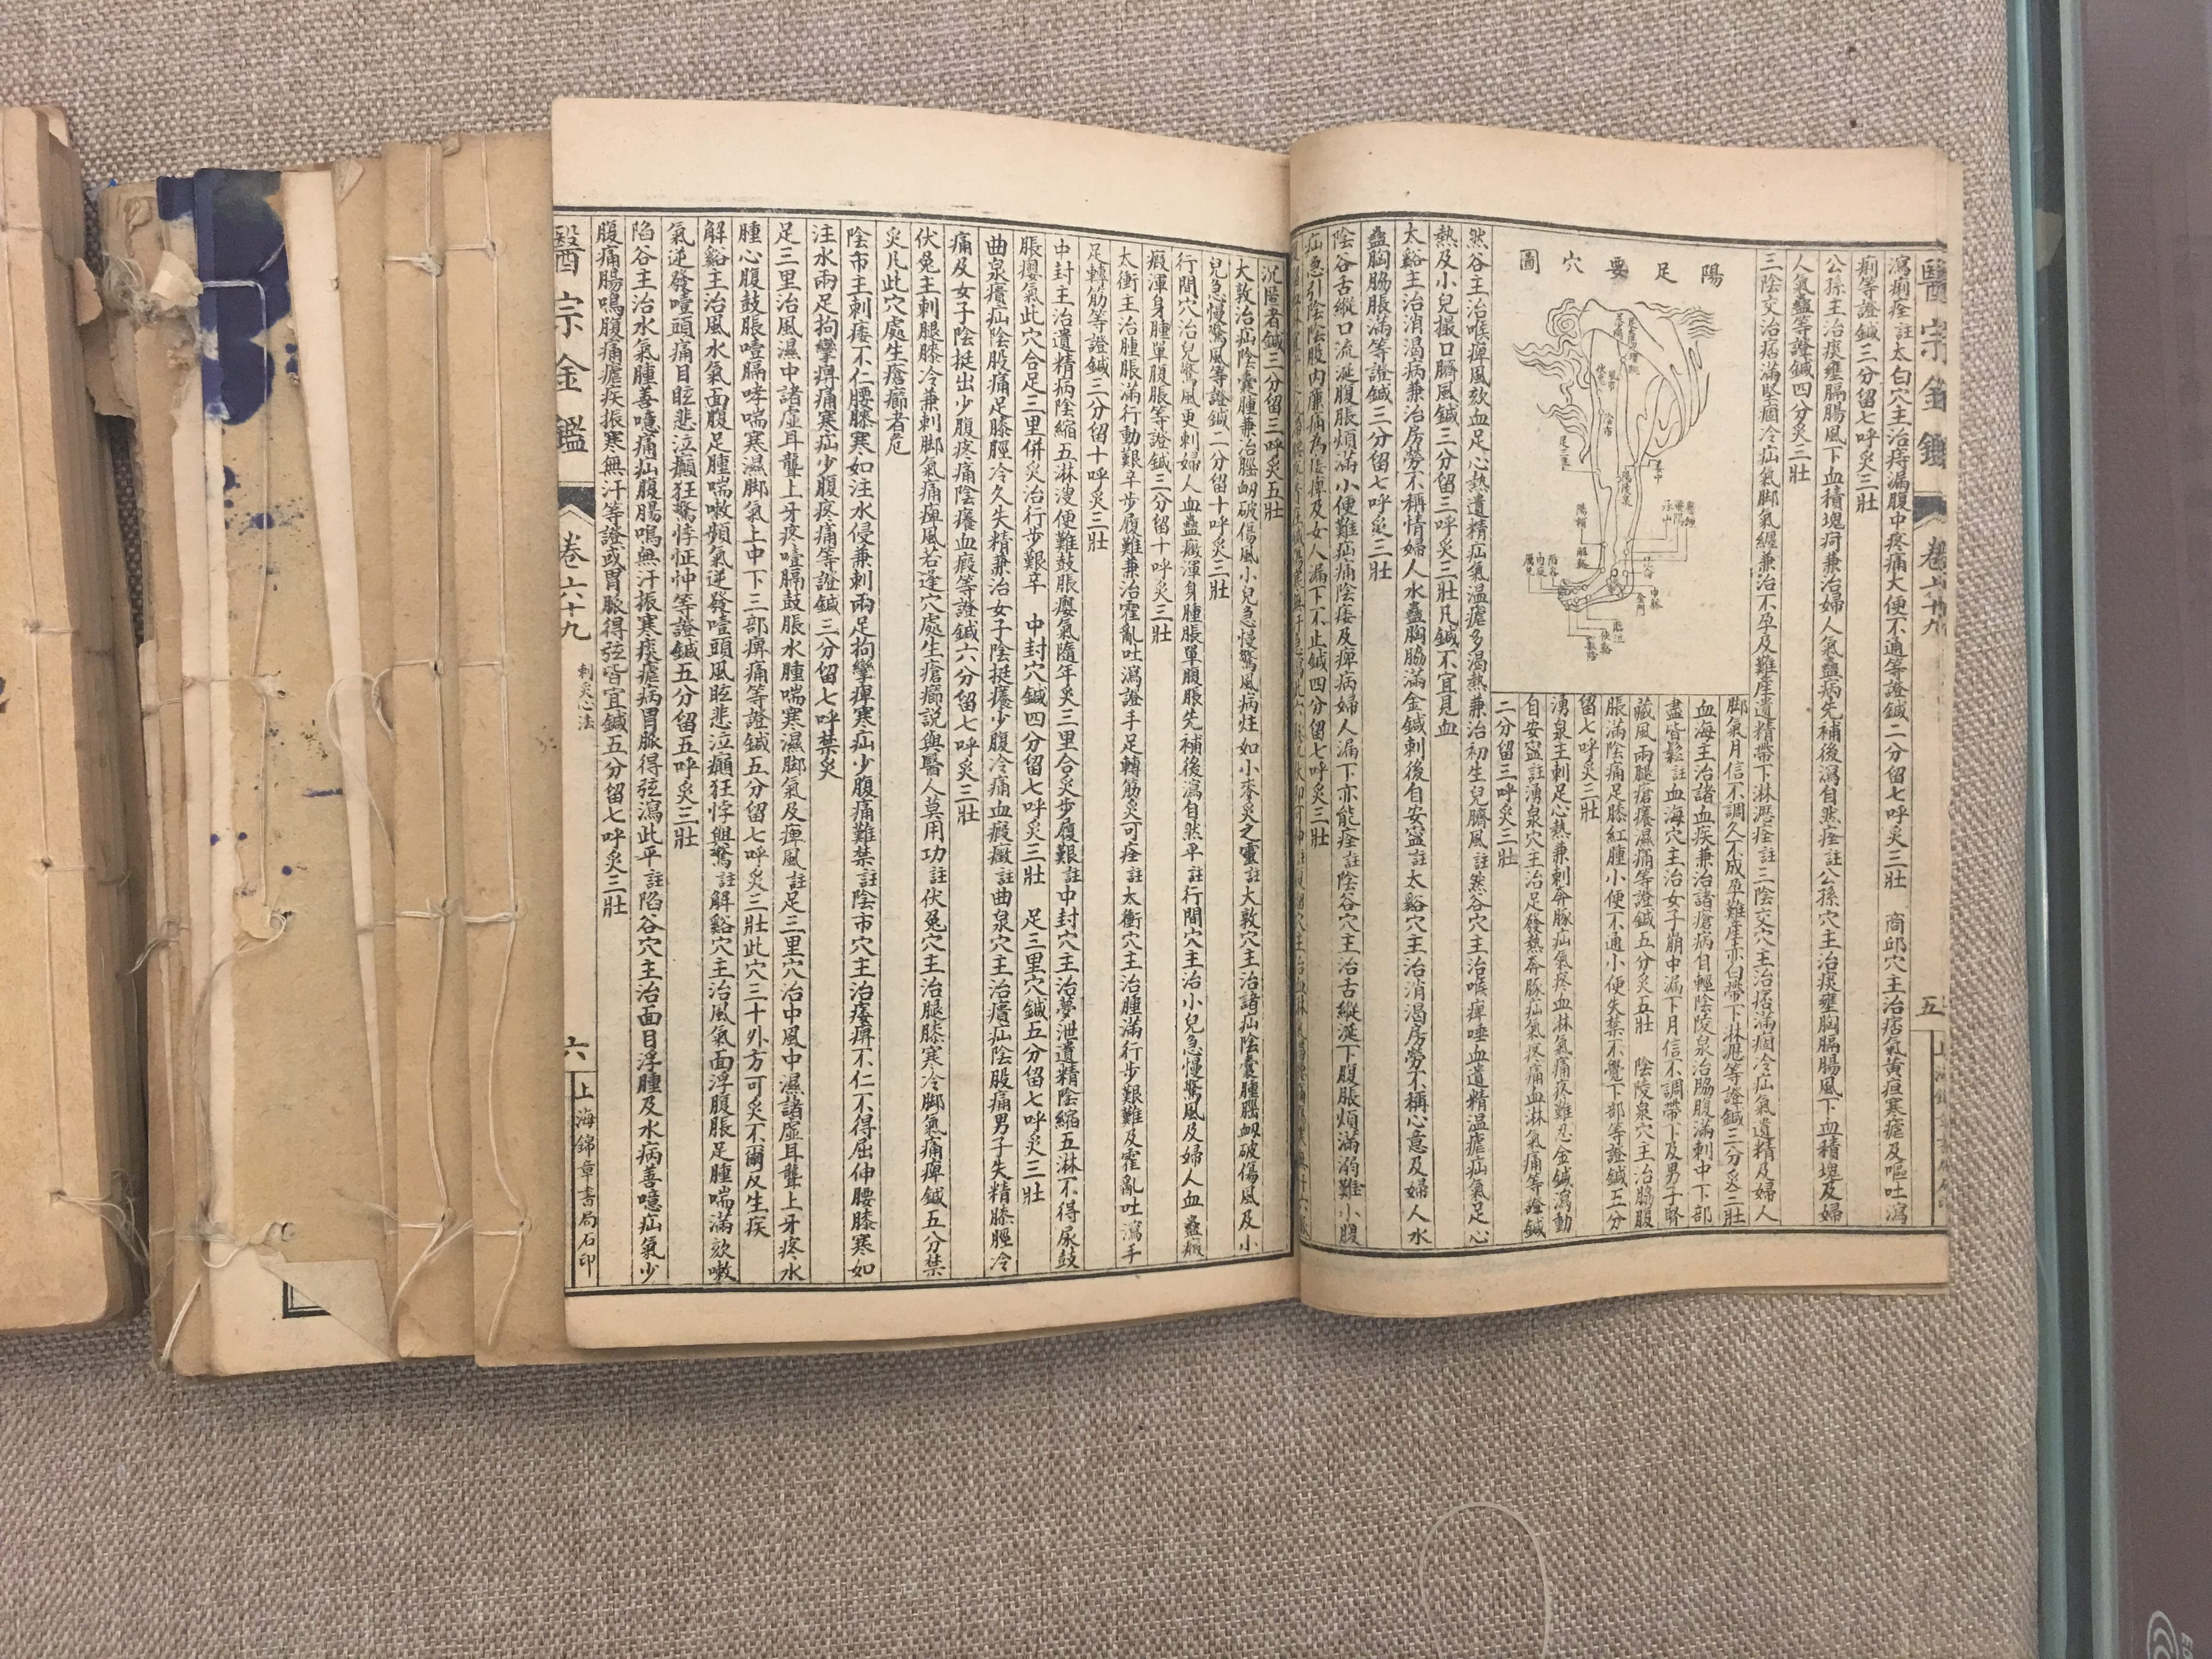 醫宗金鑑
卷六十九
五
瀉痢痊註太白穴主治痔漏腹中疼痛大便不通等證鍼二分留七呼炙三壯　商邱穴主治痞氣黃疸寒瘧及嘔吐瀉
痢等證鍼三分留七呼炙三壯
公孫主治痰壅膈腸風下血積塊疴兼治婦人氣蠱病先補後瀉自然痊註公孫穴主治痰壅胸膈腸風下血積塊及婦
人氣蠱等證鍼四分炙三壯
三陰交治痞滿堅痼冷疝氣脚氣纏兼治不孕及難產遺精帶下淋瀝痊註三陰交穴主治痞滿痼冷疝氣遺精及婦人
脚氣月信不調久不成孕難產赤白帶下淋瀝等證鍼三分炙三壯
血海主治諸血疾兼治諸瘡病自輕陰陵泉治脇腹滿刺中下部
盡皆鬆註血海穴主治女子崩中漏下月信不調帶下及男子腎
藏風兩腿瘡癢濕痛等證鍼五分炙五壯　陰陵泉穴主治脇腹
脹滿陰痛足膝紅腫小便不通小便失禁不覺下部等證鍼五分
留七呼炙三壯
湧泉主刺足心熱兼刺奔豚疝氣疼血淋氣痛疼難忍金鍼瀉動
自安寧註湧泉穴主治足發熱奔豚疝氣疼痛血淋氣痛等證鍼
二分留三呼炙三壯
陽足要穴圖
陰市
陽輔
解谿
金門
然谷主治喉痺風欬血足心熱遺精疝氣温瘧多渴熱兼治初生兒臍風註然谷穴主治喉痺唾血遺精温瘧疝氣足心
熱及小兒撮口臍風鍼三分留三呼炙三壯凡鍼不宜見血
太谿主治消渴病兼治房勞不稱情婦人水蠱胸脇滿金鍼刺後自安寧註太谿穴主治消渴房勞不稱心意及婦人水
蠱胸脇脹滿等證鍼三分留七呼炙三壯
陰谷舌縱口流涎腹脹煩滿小便難疝痛陰痿及痺病婦人漏下亦能痊註陰谷穴主治舌縱涎下腹脹煩滿溺難小腹
疝急引陰陰股内廉痛為痿痺及女人漏下不止鍼四分留七呼炙三壯
沉匿者鍼三分留三呼炙五壯
大敦治疝陰囊腫兼治腦衂破傷風小兒急慢驚風病炷如小麥炙之靈註大敦穴主治諸疝陰囊腫腦衂破傷風及小
兒急慢驚風等證鍼二分留十呼炙三壯
行間穴治兒驚風更刺婦人血蠱癥渾身腫脹單腹脹先補後瀉自然平註行間穴主治小兒急慢驚風及婦人血蠱癥
瘕渾身腫單腹脹等證鍼三分留十呼炙三壯
太衝主治腫脹滿行動艱辛步履難兼治霍亂吐瀉證手足轉筋炙可痊註太衝穴主治腫滿行步艱難及霍亂吐瀉手
足轉筋等證鍼三分留十呼炙三壯
中封主治遺精病陰縮五淋溲便難鼓脹癭氣隨年炙三里合炙步履艱註中封穴主治夢泄遺精陰縮五淋不得尿鼓
脹癭氣此穴合足三里併炙治行步艱辛　中封穴鍼四分留七呼炙三壯　足三里穴鍼五分留七呼炙三壯
曲泉㿉疝陰股痛足膝脛冷久失精兼治女子陰挺癢少腹冷痛血瘕癥註曲泉穴主治㿉疝陰股痛男子失精膝脛冷
痛及女子陰挺出少腹疼痛陰癢血瘕等證鍼六分留七呼炙三壯
伏兔主刺腿膝冷兼刺脚氣痛痺風若逢穴處生瘡癤説與醫人莫用功註伏兔穴主治腿膝寒冷脚氣痛痺鍼五分禁
炙凡此穴處生瘡癤者危
陰市主刺痿不仁腰膝寒如注水侵兼刺兩足拘攣痺寒疝少腹痛難禁註陰市穴主治痿痺不仁不得屈伸腰膝寒如
注水兩足拘攣痺痛寒疝少腹疼痛等證鍼三分留七呼禁炙
足三里治風濕中諸虛耳聾上牙疼噎膈鼓脹水腫喘寒濕脚氣及痺風註足三里穴治中風中濕諸虛耳聾上牙疼水
腫心腹鼓脹噎膈哮喘寒濕脚氣上中下三部痺痛等證鍼五分留七呼炙三壯此穴三十外方可炙不爾反生疾
解谿主治風水氣面腹足腫喘嗽頻氣逆發噎頭風眩悲泣癲狂悸與驚註解谿穴主治風氣面浮腹脹足腫喘滿欬嗽
氣逆發噎頭痛目眩悲泣癲狂驚悸怔忡等證鍼五分留五呼炙三壯
陷谷主治水氣腫善噫痛疝腹腸鳴無汗振寒痰瘧病胃脈得弦瀉此平註陷谷穴主治面目浮腫及水病善噫疝氣少
腹痛腸鳴腹痛瘧疾振寒無汗等證或胃脈得弦皆宜鍼五分留七呼炙三壯
醫宗金鑑
卷六十九
刺炙心法
六
上海錦章書局石印